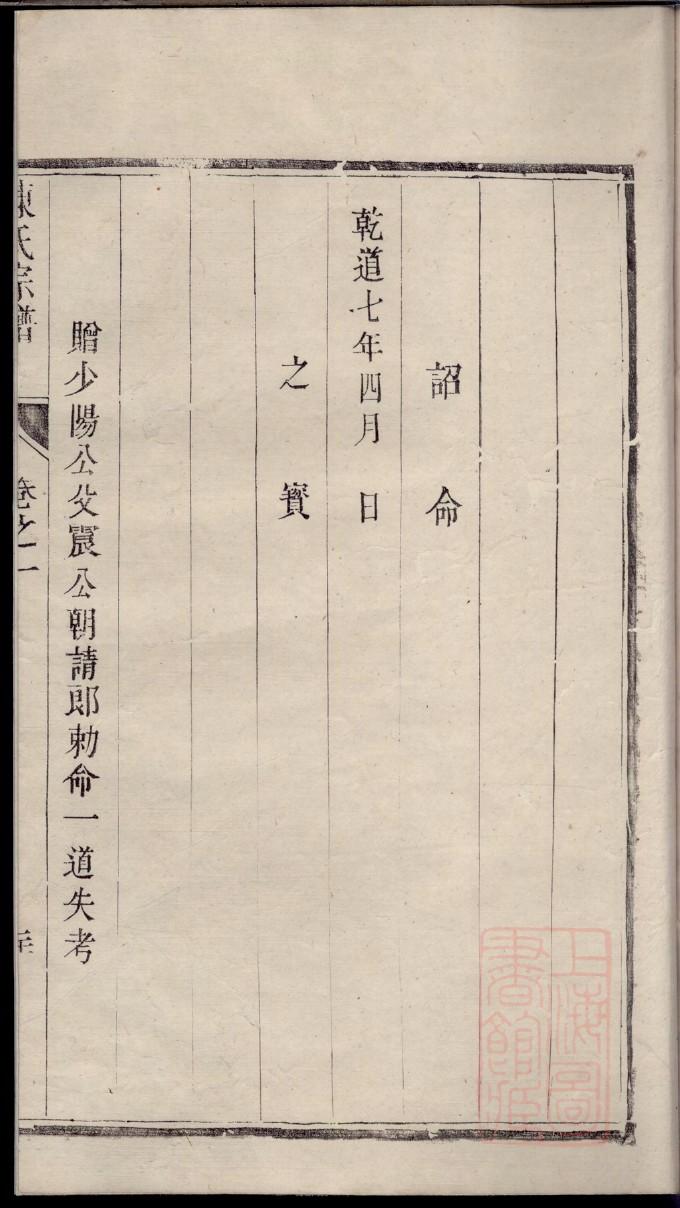 詔命
乾道七年四月　日
之寶
贈少陽公父震公朝請郎勅命一道失考
陳氏宗譜
卷之一
上海圖書館藏